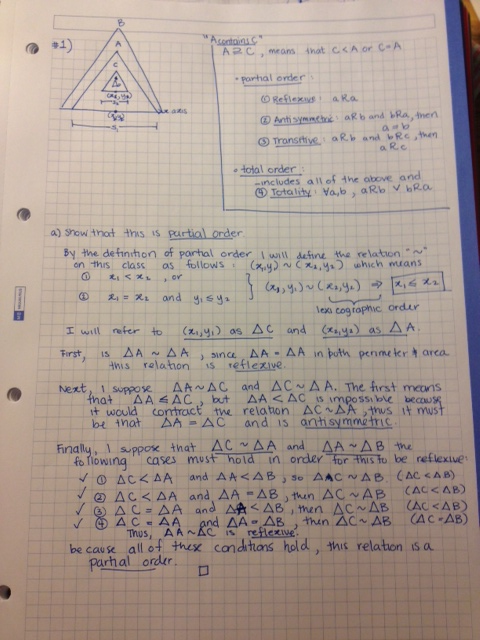 #1)
B
A
C
(x₂, y₂)
S₂
x axis
S₁
"A contains C"
A ≥ C, means that C < A or C = A
• partial order:
① Reflexive: aRa
② Antisymmetric: aRb and bRa, then
a = b
③ Transitive: aRb and bRc, then
aRc
• total order:
- includes all of the above and
④ Totality: ∀a,b, aRb ∨ bRa
a) Show that this is partial order.
By the definition of partial order I will define the relation "~"
on this class as follows: (x₁,y₁) ~ (x₂,y₂) which means
① x₁ < x₂, or
② x₁ = x₂ and y₁ ≤ y₂ } (x₁,y₁) ~ (x₂,y₂) ⇒ x₁ ≤ x₂
lexicographic order
I will refer to (x₁,y₁) as △C and (x₂,y₂) as △A.
First, is △A ~ △A, since △A = △A in both perimeter & area
this relation is reflexive.
Next, I suppose △A ~ △C and △C ~ △A. The first means
that △A ≤ △C, but △A < △C is impossible because
it would contract the relation △C ~ △A, thus it must
be that △A = △C and is antisymmetric.
Finally, I suppose that △C ~ △A and △A ~ △B the
following cases must hold in order for this to be reflexive:
✓ ① △C < △A and △A < △B, so △C ~ △B (△C < △B)
✓ ② △C < △A and △A = △B, then △C ~ △B (△C < △B)
✓ ③ △C = △A and △A < △B, then △C ~ △B (△C < △B)
✓ ④ △C = △A and △A = △B, then △C ~ △B (△C = △B)
Thus, △A ~ △C is reflexive.
because all of these conditions hold, this relation is a
partial order. □